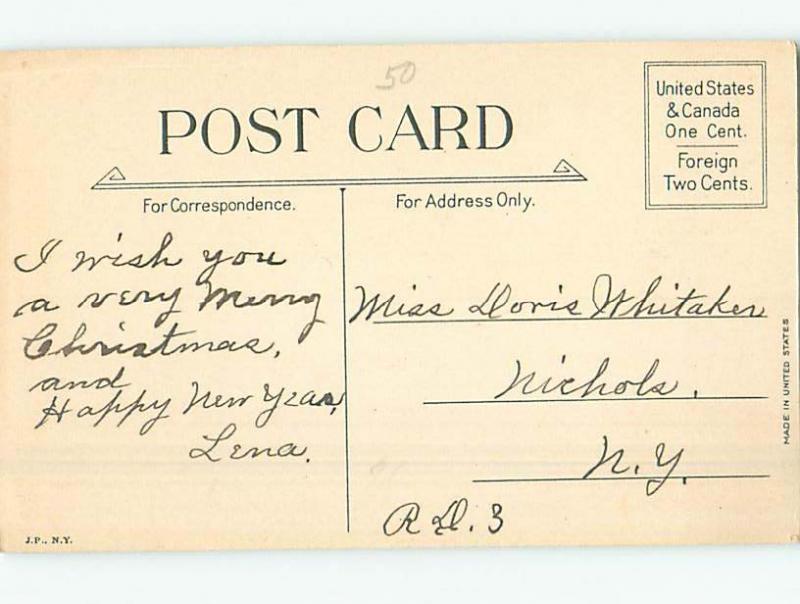 50
POST CARD
United States
& Canada
One Cent.
Foreign
Two Cents.
For Correspondence.
For Address Only.
I wish you
a very Merry
Christmas,
and
Happy New Year,
Lena.
Miss Doris Whitaker
Nichols,
N.Y.
R.D. 3
MADE IN UNITED STATES
J.P., N.Y.